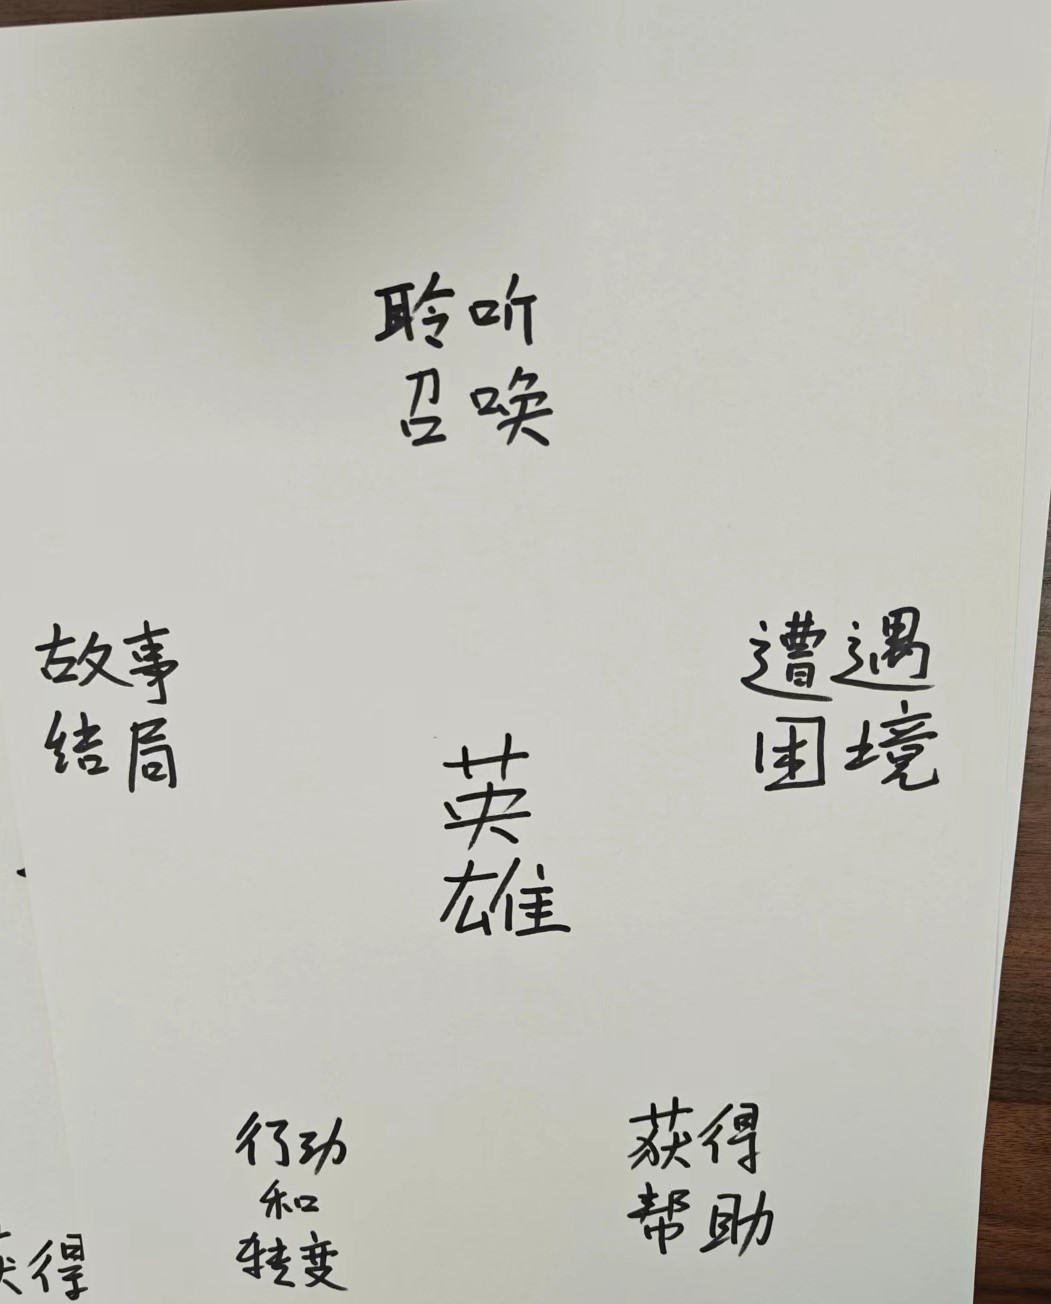 聆听
召唤
故事
结局
遭遇
困境
英
雄
行动
和
转变
获得
帮助
获得